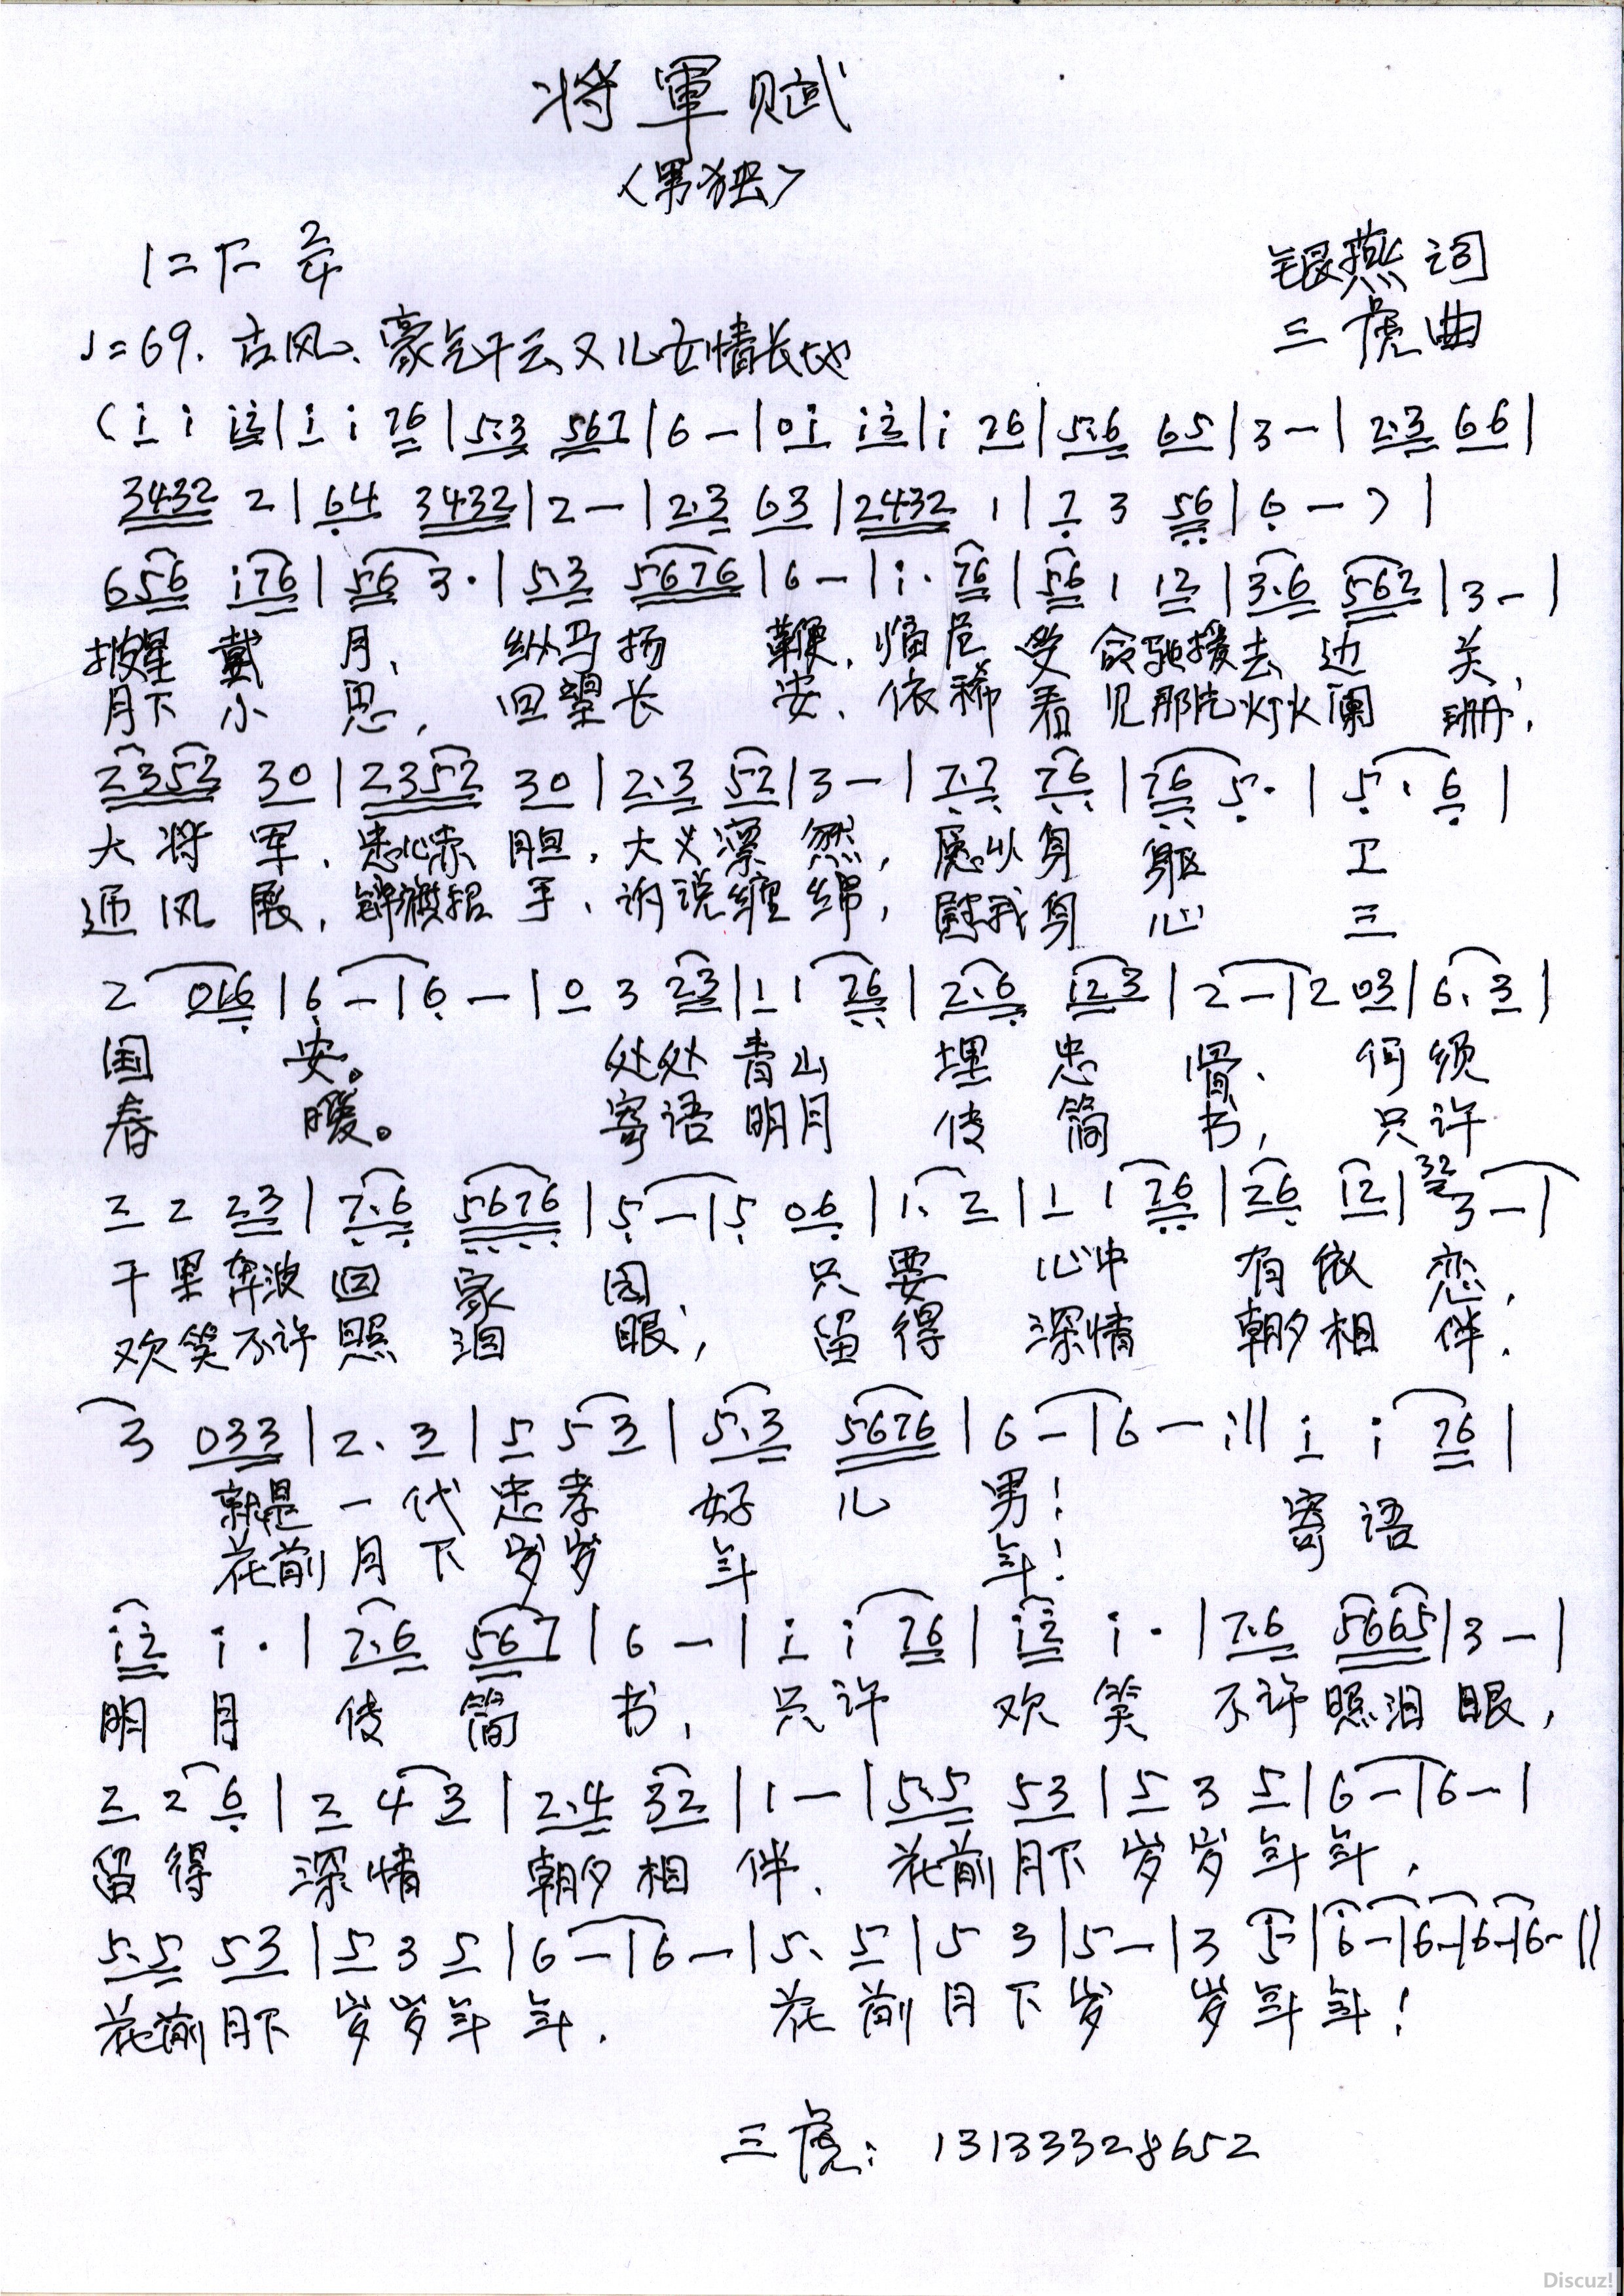 将軍赋
<男独>
1=F 2/4
银燕词
♩=69. 古风、豪气干云又儿女情长地
三虎曲
(i i i2|i i 76|5.3 567|6 -|0i i2|i 76|5.6 65|3 -|2.3 66|
3432 2|64 3432|2 -|2.3 63|2432 1|7 3 56|6 - )|
656 i76|56 3·|5.3 5676|6 -|i· 76|56 1 12|3.6 562|3 -|
披星戴月、纵马扬鞭,临危受命驰援去边关,
月下小思,回望长安、依稀看见那片灯火阑珊,
2352 30|2352 30|2.3 52|3 -|7.7 76|76 5·|5· 6|
大将军,忠心赤胆,大义凛然,愿以身躯卫
迎风展,锦旗招手、诉说缠绵,慰我身心三
2 016|6 -|6 -|0 3 23|1 1 76|2.6 123|2 -|2 03|6. 3|
国安。处处青山埋忠骨、何须
春暖。寄语明月传简书,只许
2 2 23|7.6 5676|5 -|5 06|1. 2|1 1 76|26 12|32 3 -|
千里奔波回家园、只要心中有依恋,
欢笑不许照泪眼,留得深情朝夕相伴.
3 033|2. 3|5 5 3|5.3 5676|6 -|6 - :|| i i 76|
就是一代忠孝好儿男!寄语
花前月下岁岁年年!
i2 i·|7.6 567|6 -|i i 76|i2 i·|7.6 5665|3 -|
明月传简书,只许欢笑不许照泪眼,
2 2 6|2 4 3|2.4 32|1 -|5.5 53|5 3 5|6 -|6 -|
留得深情朝夕相伴、花前月下岁岁年年,
5.5 53|5 3 5|6 -|6 -|5. 5|5 3|5 -|3 5-|6 -|6 -|6 -|6 -||
花前月下岁岁年年.花前月下岁岁年年!
三虎:13133328652
Discuz!